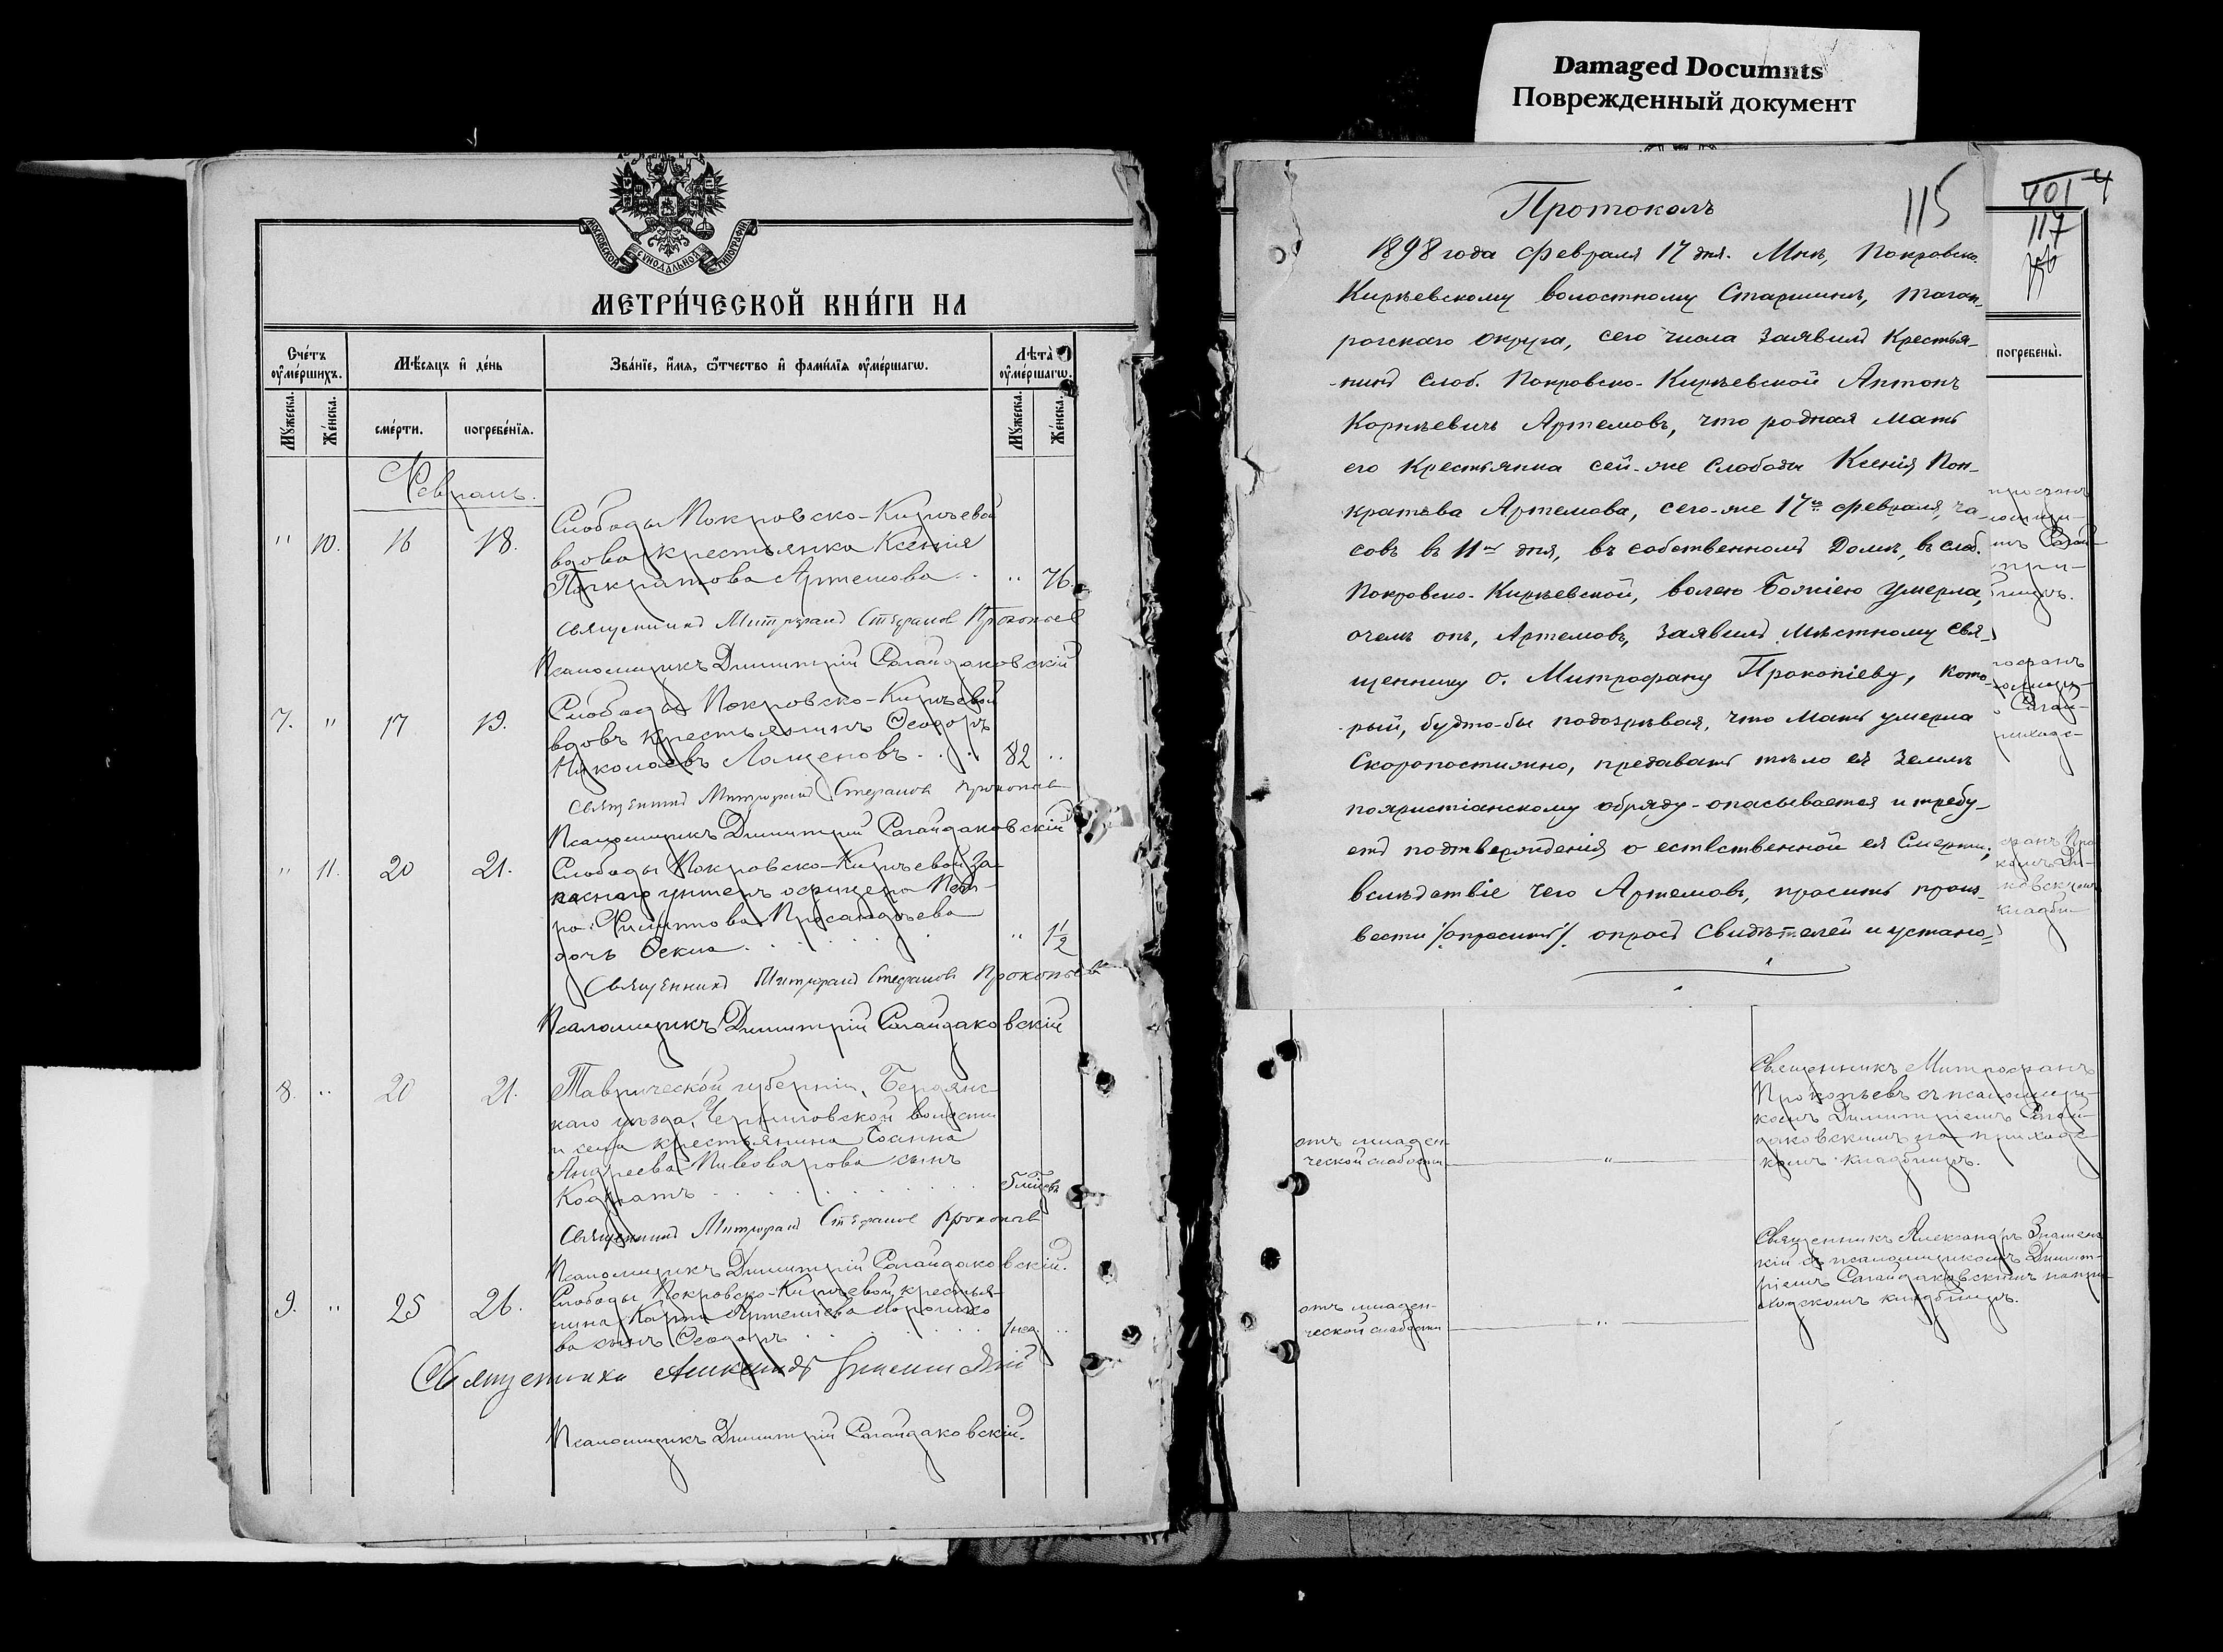 Damaged Documnts
Поврежденный документ
МОСКОВСКОЙ СѴНОДАЛЬНОЙ ТИПОГРАФІИ
МЕТРИ́ЧЕСКОЙ КНИ́ГИ НА
Сче́тъ
оу҆ме́ршихъ.
Мѣ́сяцъ и҆ де́нь
Зва́нїе, и҆́мя, ѻ҆́тчество и҆ фами́лїя оу҆ме́ршагѡ.
Лѣта̀
оу҆ме́ршагѡ.
Мꙋ́жеска.
Же́нска.
сме́рти.
погребе́нїя.
Мꙋ́жеска.
Же́нска.
Февраль.
" 10. 16 18. Слободы Покровско-Кирѣевой
вдова крестьянка Ксенія
Панкратова Артемова . . " 76.
Священникъ Митрофанъ Стефановъ Прокопьевъ
Псаломщикъ Димитрій Сагайдаковскій
7. " 17 19. Слободы Покровско-Кирѣевой
вдовъ крестьянинъ Ѳеодоръ
Николаевъ Лащеновъ . . . 82 "
Священникъ Митрофанъ Стефановъ Прокопьевъ
Псаломщикъ Димитрій Сагайдаковскій
" 11. 20 21. Слободы Покровско-Кирѣевой за-
паснаго унтеръ офицера Пет-
ра Филиппова
дочь Ѳекла . . . . . " 1 1/2
Священникъ Митрофанъ Стефановъ Прокопьевъ
Псаломщикъ Димитрій Сагайдаковскій
8. " 20 21. Таврической губерніи, Бердянс-
каго уѣзда, Черниговской волости
и села крестьянина Іоанна
Андреева Пивоварова сынъ
Кодратъ . . . . . 5 мѣсяц.
Священникъ Митрофанъ Стефановъ Прокопьевъ
Псаломщикъ Димитрій Сагайдаковскій.
9. " 25 26. Слободы Покровско-Кирѣевой крестья-
нина Карпа Артемиева
ва сынъ Ѳеодоръ . . . . 1 нед. "
Священникъ Александръ Знаменскій
Псаломщикъ Димитрій Сагайдаковскій.
Протоколъ
115
1898 года февраля 17 дня. Мнѣ, Покровско-
Кирѣевскому волостному Старшинѣ, Таган-
рогскаго округа, сего числа заявилъ Крестья-
-нинъ Слоб. Покровско-Кирѣевской Антонъ
Корнѣевичъ Артемовъ, что родная мать
его Крестьянка сей-же Слободы Ксенія Пон-
кратьва Артемова, сего-же 17го февраля, ча-
совъ въ 11ть дня, въ собственномъ Домѣ, въ слоб.
Покровско-Кирѣевской, волею Божіею умерла,
очемъ онъ, Артемовъ, заявилъ мѣстному свя-
щеннику о. Митрофану Прокопіеву, кото-
рый, будто-бы подозрѣвая, что мать умерла
Скоропостижно, предавать тѣло ея землѣ
похристіанскому обряду-опасывается и требу-
етъ подтвержденія о естественной ея Смерти;
вслѣдствіе чего Артемовъ, проситъ произ-
вести /опросить/ опросъ Свидѣтелей и устано-
401
117
погребены̀.
отъ младен-
ческой слабости "
Священникъ Митрофанъ
Прокопьевъ съ псаломщи-
комъ Димитріемъ Сагай-
даковскимъ на приходс-
комъ кладбищѣ.
отъ младен-
ческой слабости "
Священникъ Александръ Знаменс-
кій съ псаломщикомъ Димит-
ріемъ Сагайдаковскимъ на при-
ходскомъ кладбищѣ.